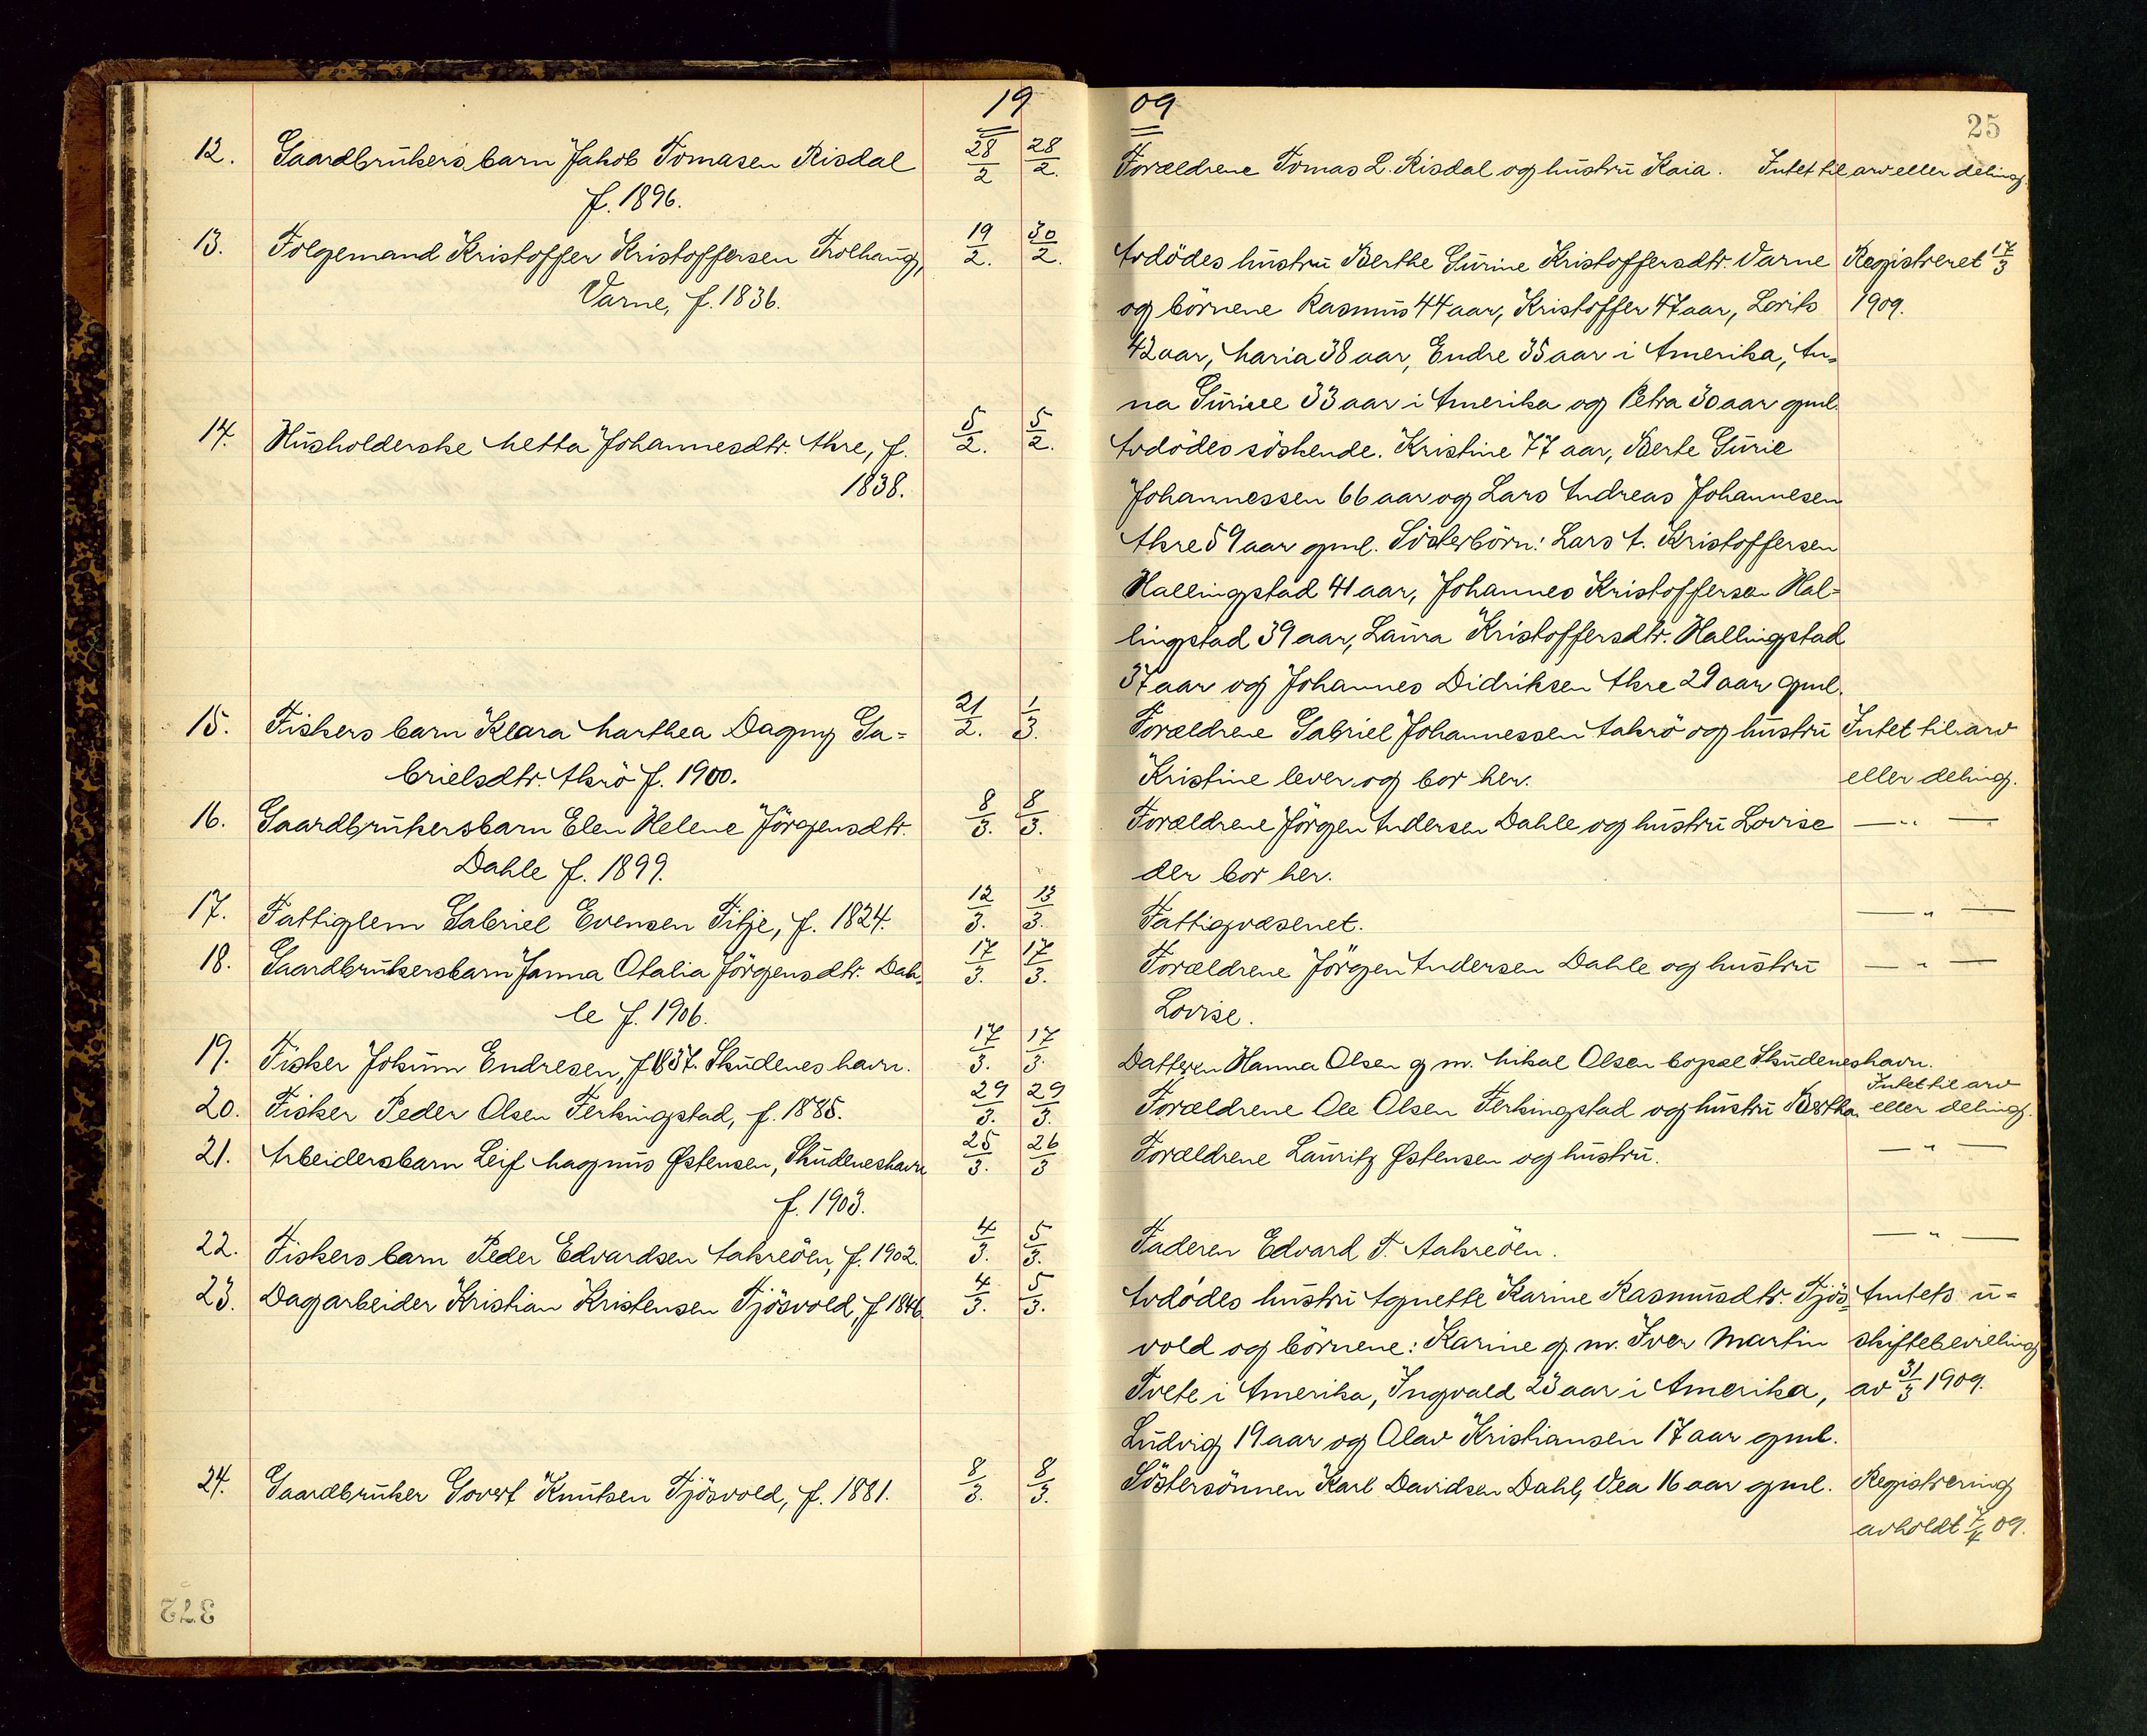 19 09
25
12. Gaardbrukersbarn Jakob Tomasen Risdal 28/2 28/2. Forældrene Tomas L. Risdal og hustru Kaia. Intet til arv eller deling.
f. 1896.
13. Folgemand Kristoffer Kristoffersen Trolhaug, 19/2. 30/2. Avdödes hustru Berthe Gurine Kristoffersdtr. Varne Registreret 17/3
Varne, f. 1836. og börnene Rasmus 44 aar, Kristoffer 47 aar, Lorits 1909.
42 aar, Maria 38 aar, Endre 35 aar i Amerika, An-
na Gurine 33 aar i Amerika og Petra 30 aar gml.
14. Husholderske Metta Johannesdtr. Akre, f. 5/2. 5/2. Avdödes söskende. Kristine 77 aar, Berte Gurie
1838. Johannessen 66 aar og Lars Andreas Johannesen
Akre 59 aar gml. Sösterbörn: Lars A. Kristoffersen
Hallingstad 41 aar, Johannes Kristoffersen Hal-
lingstad 39 aar, Laura Kristoffersdtr. Hallingstad
37 aar og Johannes Didriksen Akre 29 aar gml.
15. Fiskers barn Klara Marthea Dagny Ga- 21/2. 1/3. Forældrene Gabriel Johannessen Aakrö og hustru Intet til arv
brielsdtr. Akrö f. 1900. Kristine lever og bor her. eller deling.
16. Gaardbrukersbarn Elen Helene Jörgensdtr. 8/3. 8/3. Forældrene Jörgen Andersen Dahle og hustru Lovise — „ —
Dahle f. 1899. der bor her.
17. Fattiglem Gabriel Evensen Fitje, f. 1824. 12/3. 13/3. Fattigvæsenet. — „ —
18. Gaardbrukersbarn Janna Otalia Jörgensdtr. Dah- 17/3. 17/3. Forældrene Jörgen Andersen Dahle og hustru — „ —
le f. 1906. Lovise.
19. Fisker Jokum Endresen, f. 1837. Skudeneshavn. 17/3. 17/3. Datteren Hanna Olsen g. m. Mikal Olsen bopæl Skudeneshavn.
20. Fisker Peder Olsen Ferkingstad, f. 1885. 29/3. 29/3. Forældrene Ole Olsen Ferkingstad og hustru Bertha Intet til arv eller deling.
21. Arbeidersbarn Leif Magnus Østensen, Skudeneshavn 25/3. 26/3 Forældrene Lauritz Østensen og hustru. — „ —
f. 1903.
22. Fiskers barn Peder Edvardsen Aakreöen, f. 1902. 4/3. 5/3. Faderen Edvard T. Aakreöen. — „ —
23. Dagarbeider Kristian Kristensen Tjösvold, f. 1846. 4/3. 5/3. Avdödes hustru Agnette Karine Rasmusdtr. Tjös- Amtets u-
vold og börnene: Karine g. m. Iver Martin skiftebevilling
Tvete i Amerika, Ingvald 23 aar i Amerika, av 31/3 1909.
Ludvig 19 aar og Olav Kristiansen 17 aar gml.
24. Gaardbruker Govert Knutsen Tjösvold, f. 1881. 8/3. 8/3. Söstersönnen Karl Davidsen Dahl, Vea 16 aar gml. Registrering
avholdt 7/4 09.
372